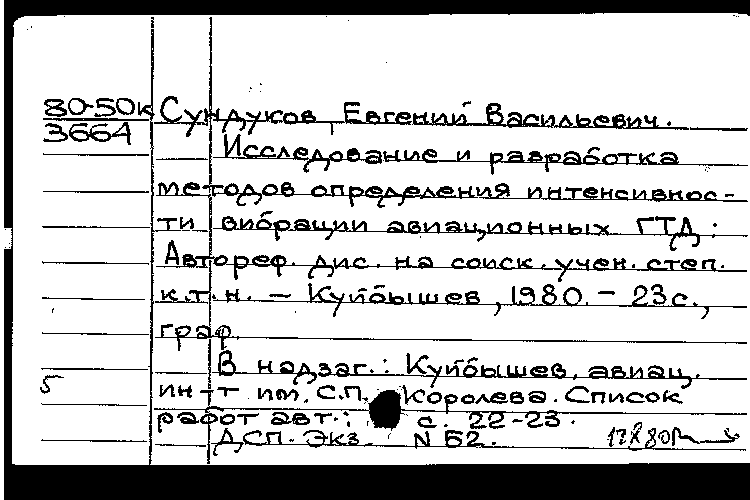 80-50к Сундуков, Евгений Васильевич.
3664
Исследование и разработка
методов определения интенсивнос-
ти вибрации авиационных ГТД:
Автореф. дис. на соиск. учен. степ.
к.т.н. – Куйбышев, 1980. – 23 с.,
граф.
В надзаг.: Куйбышев. авиац.
5 ин-т им. С.П. Королева. Список
работ авт.: с. 22-23.
ДСП. Экз. N 52.